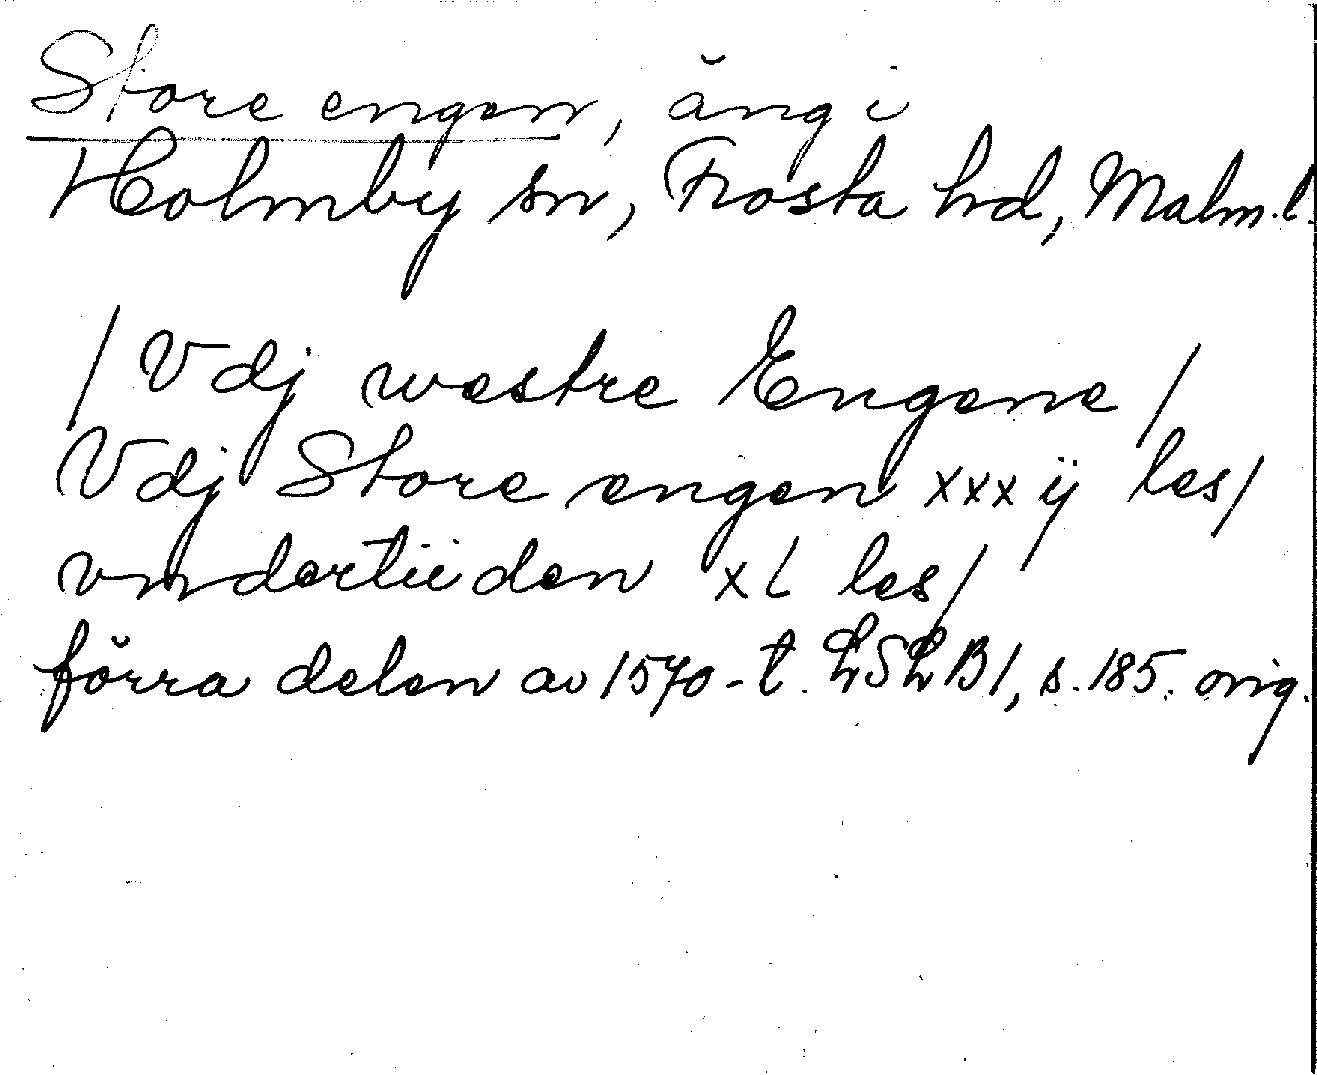 Store engen, äng i
Holmby sn, Frosta hd, Malm.l.
/ Vdj westre Engene /
Vdj Store engen xxxij les/
vndertiiden xl les/
förra delen av 1570-t. LSLB1, s. 185. orig.